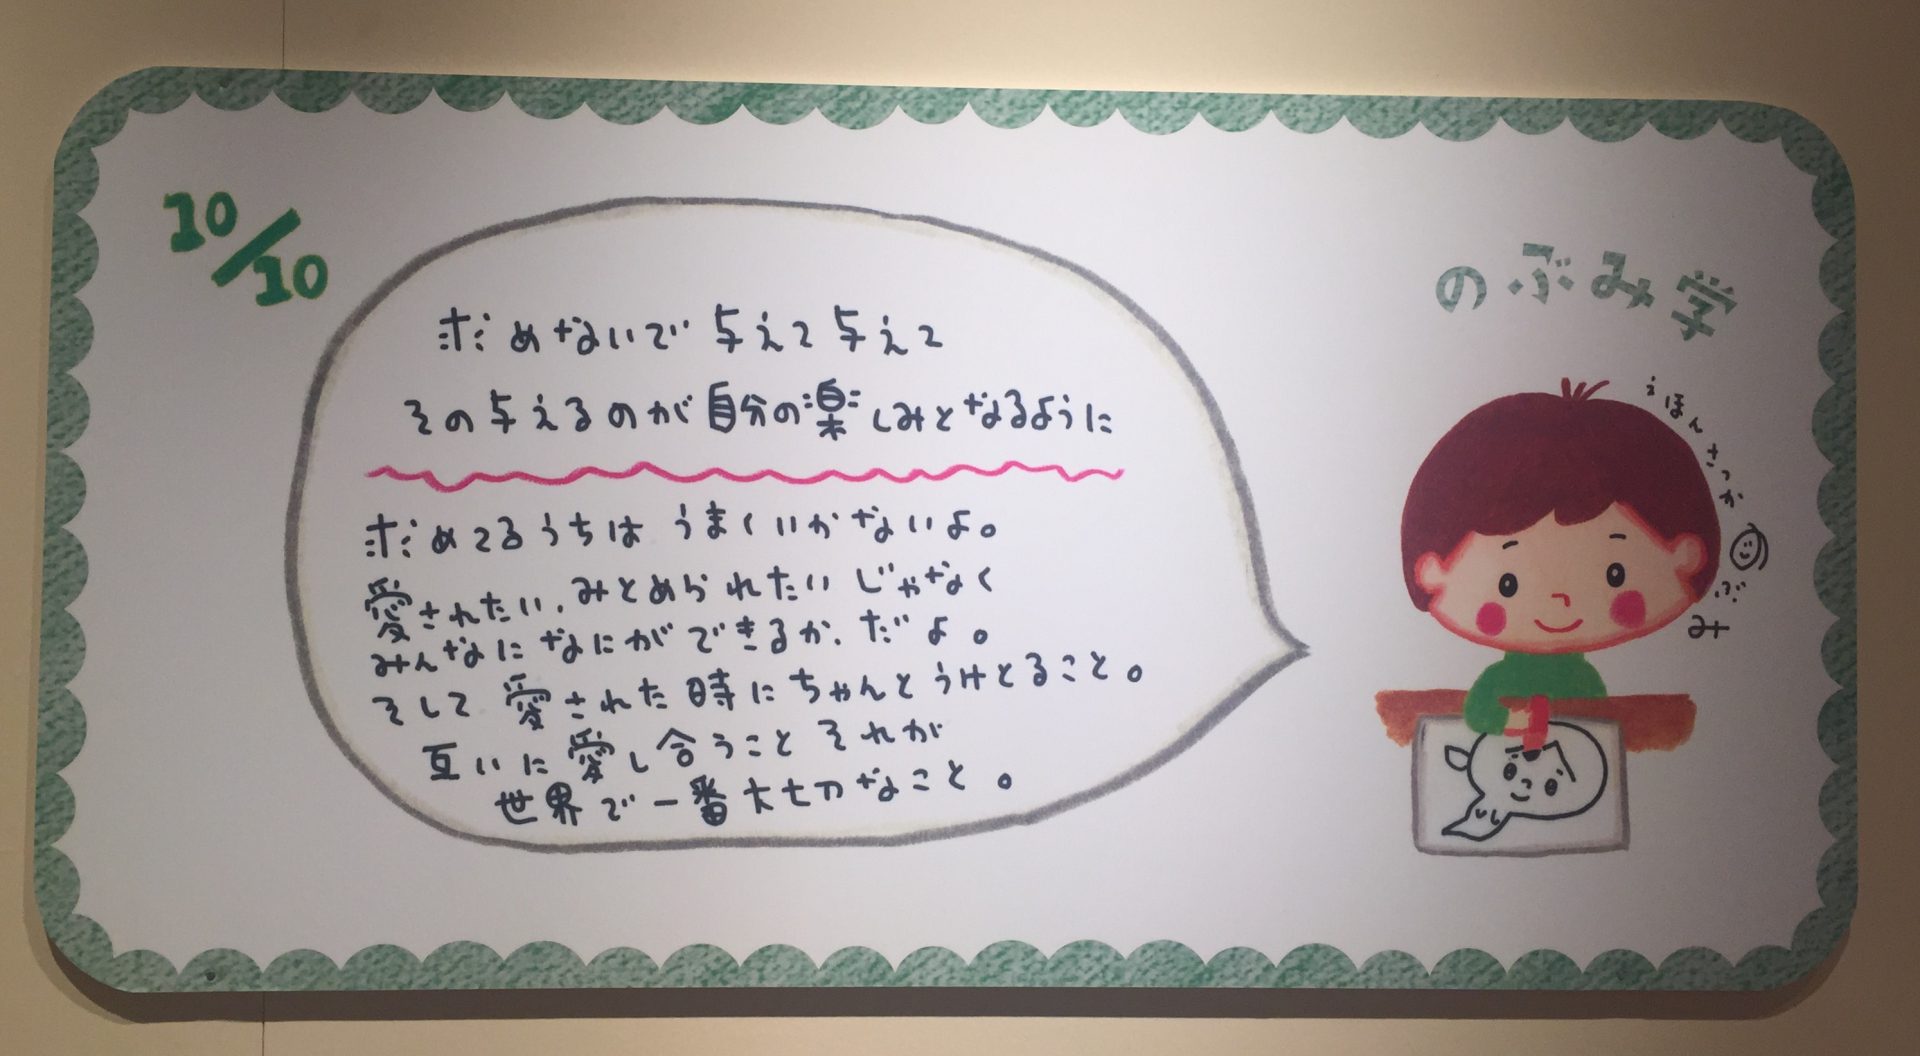 10/10
求めないで 与えて 与えて
その与えるのが自分の楽しみとなるように
求めてるうちは うまくいかないよ。
愛されたい、みとめられたい じゃなく
みんなに なにができるか、だよ。
そして 愛された時に ちゃんと うけとること。
互いに愛し合うこと それが
世界で一番大切なこと。
のぶみ学
えほんさっか
のぶみ